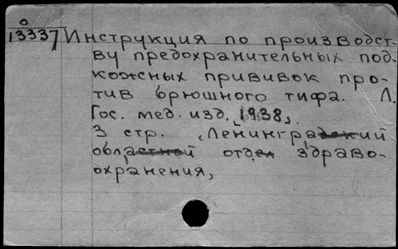 о
13337 Инструкция по производст-
ву предохранительных под-
кожных прививок про-
тив брюшного тифа. Л.
Гос. мед. изд. [1938].
3 стр. (Ленинградский
областной отдел здраво-
охранения,